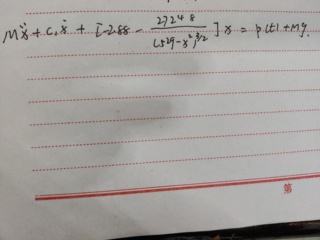 Mẍ + C₁ẋ + [-2.88 - 27248 / (529-x²)^{3/2}] x = p(t) + Mg.
第